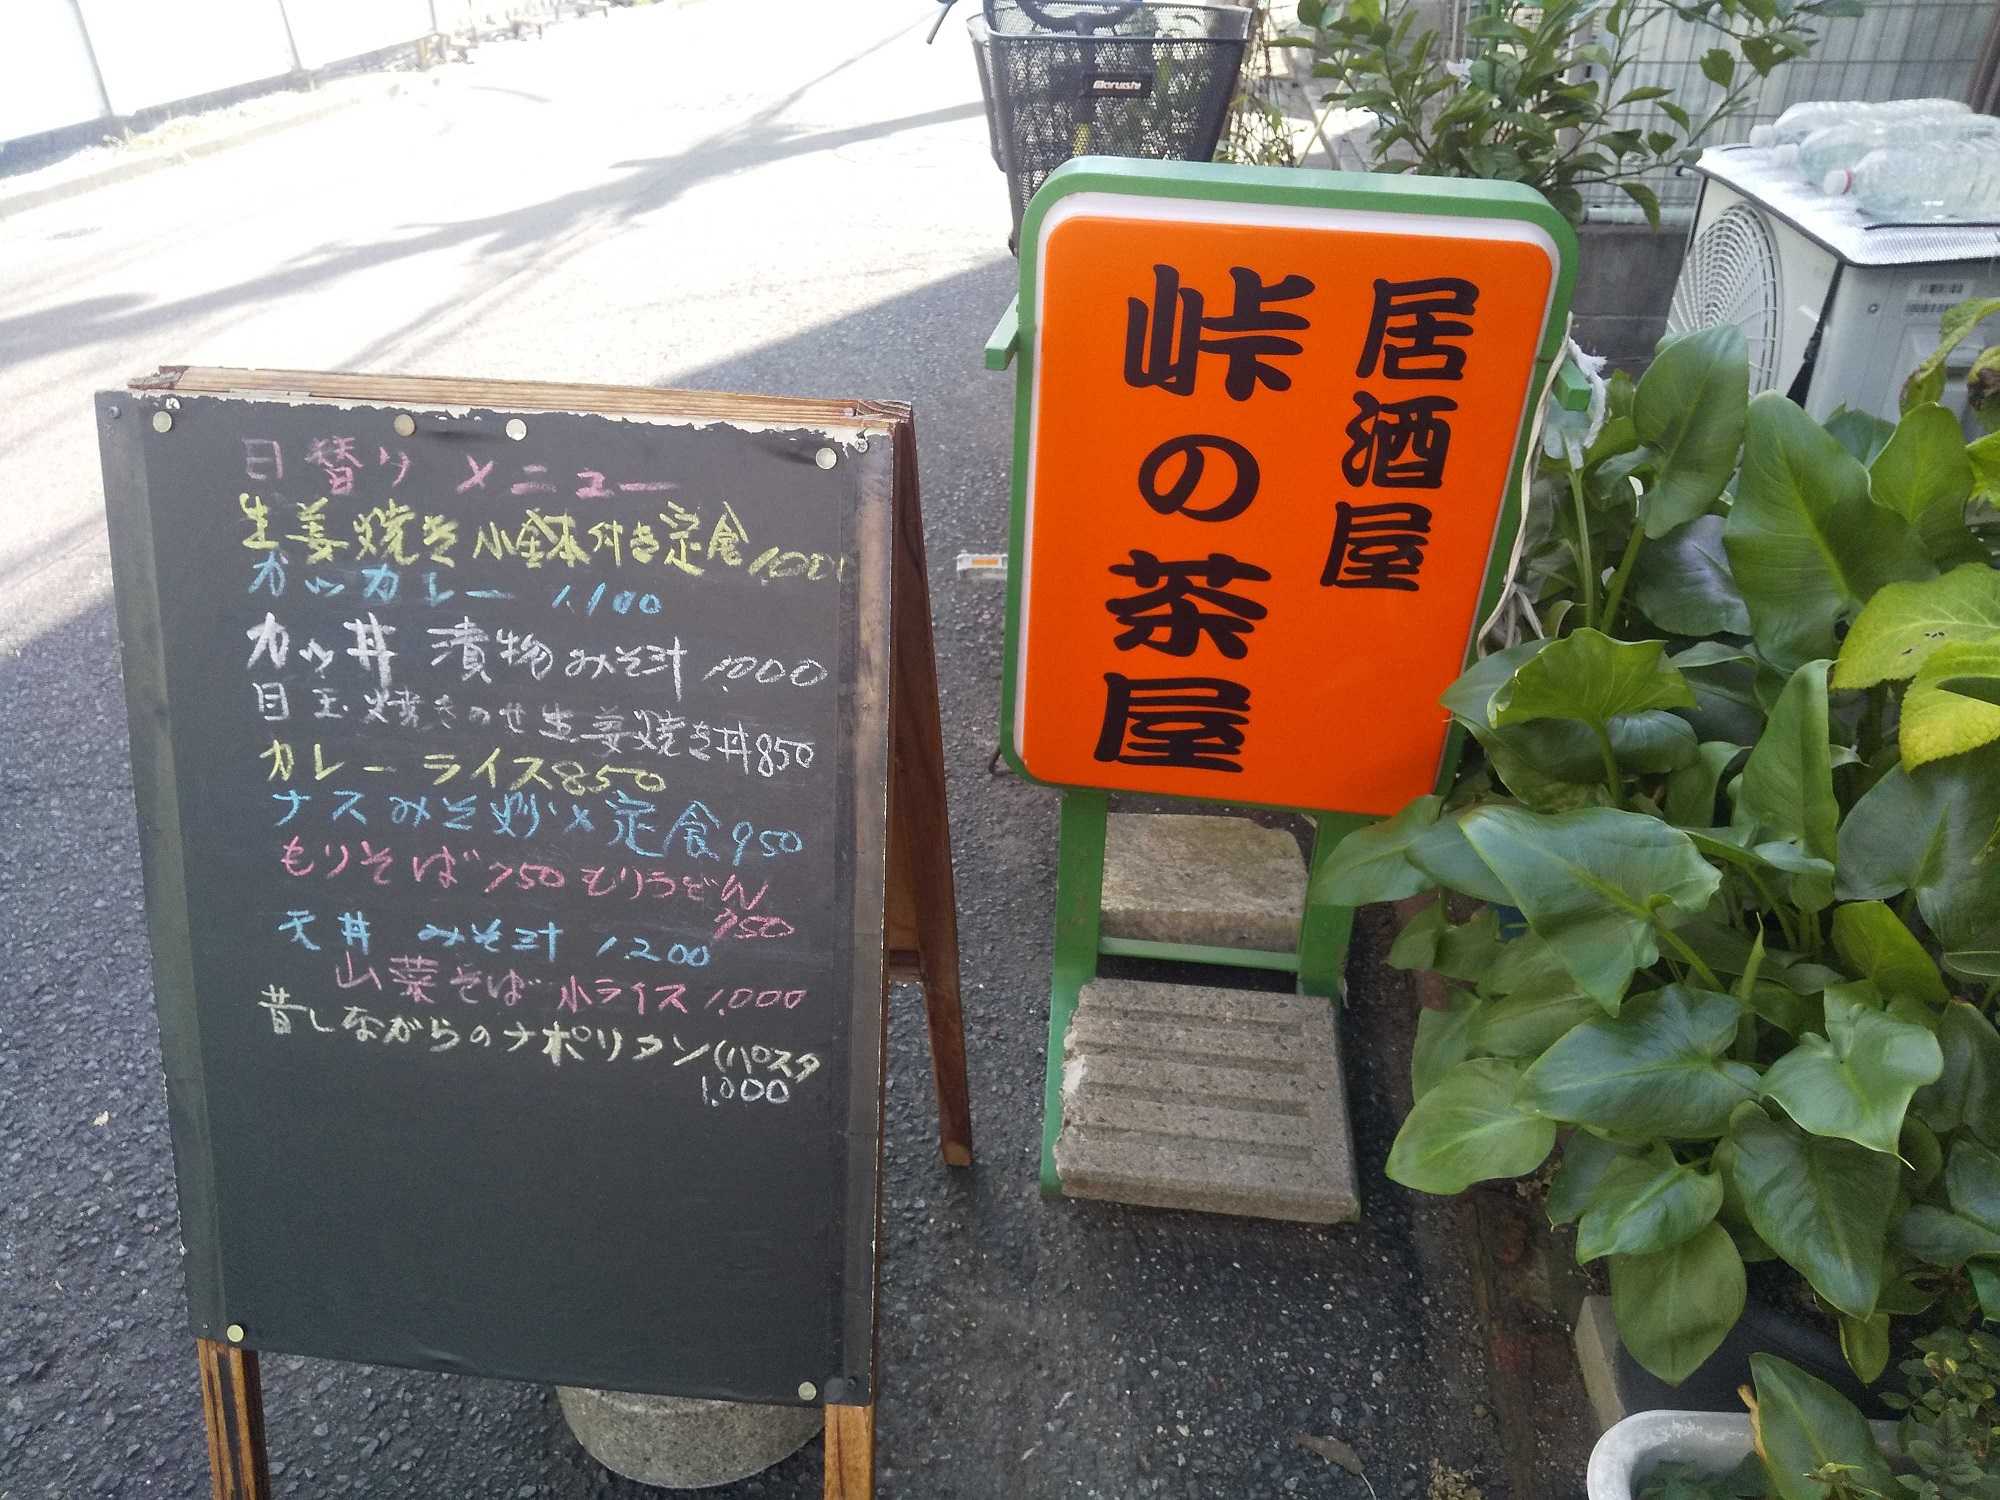 日替り メニュー
生姜焼き 小鉢付き定食 1,000
カツカレー 1,100
カツ丼 漬物 みそ汁 1,000
目玉焼きのせ生姜焼き丼850
カレーライス850
ナスみそ炒め定食950
もりそば750 もりうどん
750
天丼 みそ汁 1.200
山菜そば 小ライス 1,000
昔しながらのナポリタン(パスタ
1,000
居酒屋
峠の茶屋
maruishi